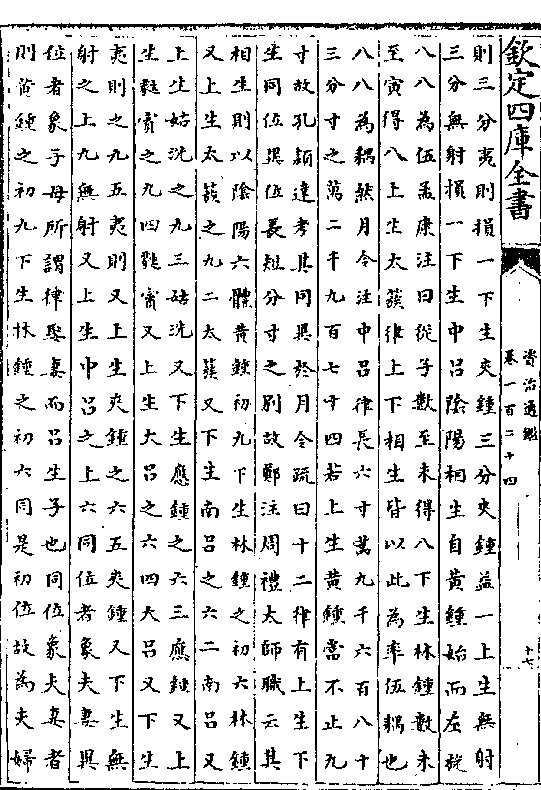 欽定四庫全書
資治通鑑
卷一百二十四
十七
則三分夷則損一下生夾鍾三分夾鍾益一上生無射
三分無射損一下生中呂陰陽相生自黃鍾始而左旋
八八為伍孟康注曰從子數至未得八下生林鍾數未
至寅得八上生太蔟律上下相生皆以此為率伍耦也
八八為耦然月令注中呂律長六寸萬九千六百八十
三分寸之萬二千九百七十四若上生黃鍾當不止九
寸故孔頴達考其同異於月令疏曰十二律有上生下
生同位異位長短分寸之別故鄭注周禮太師職云其
相生則以陰陽六體黃鍾初九下生林鍾之初六林鍾
又上生太蔟之九二太蔟又下生南呂之六二南呂又
上生姑洗之九三姑洗又下生應鍾之六三應鍾又上
生蕤賓之九四蕤賓又上生大呂之六四大呂又下生
夷則之九五夷則又上生夾鍾之六五夾鍾又下生無
射之上九無射又上生中呂之上六同位者象夫妻異
位者象子母所謂律娶妻而呂生子也同位象夫妻者
則黃鍾之初九下生林鍾之初六同是初位故為夫婦